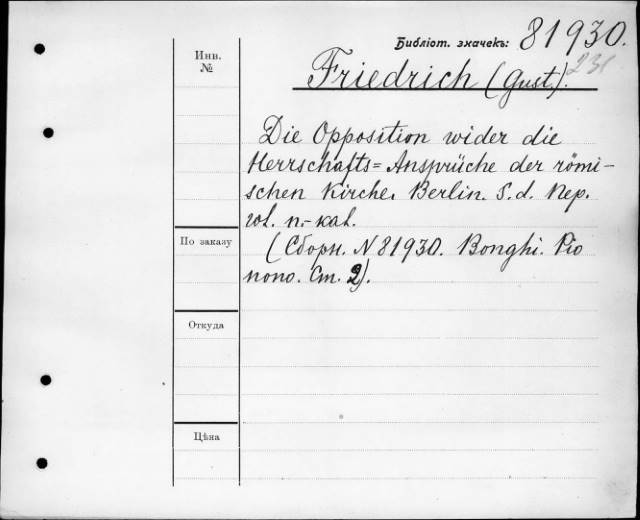 Библіот. значекъ: 81930.
231
Инв.
№
Friedrich (Gust.).
Die Opposition wider die
Herrschafts=Ansprüche der römi-
schen Kirche. Berlin. S. d. Nep.
vol. n.-kal.
По заказу
(Сборн. N 81930. Bonghi. Pio
nono. Ст. 2).
Откуда
Цѣна